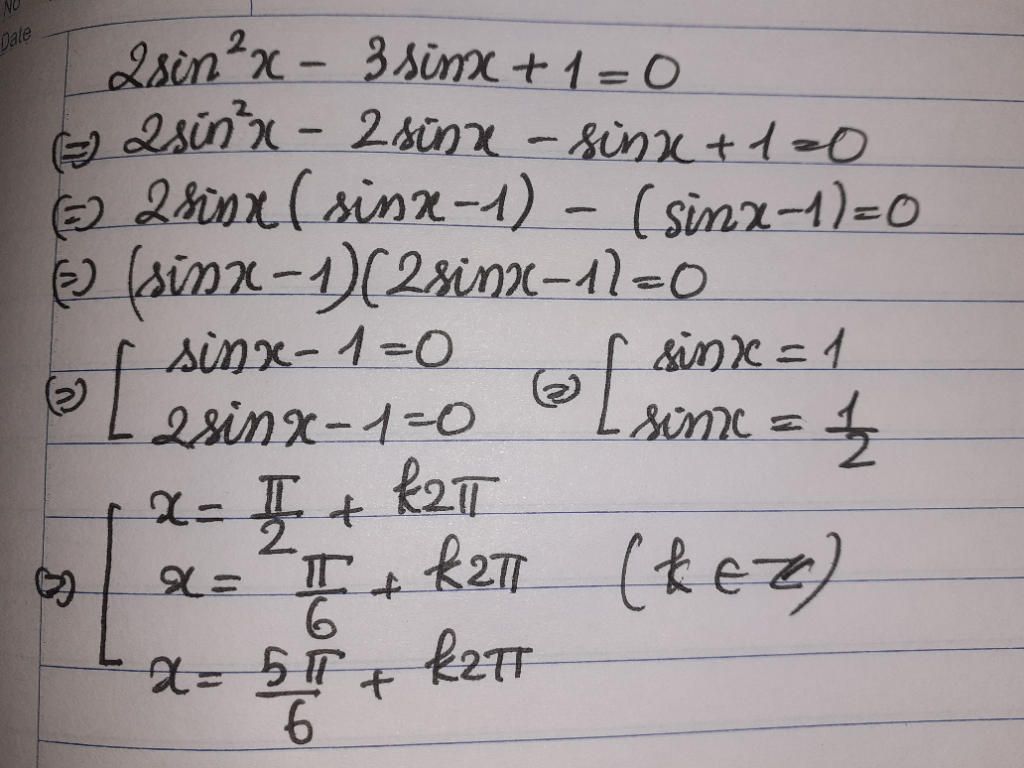 No
Date
2sin²x - 3sinx + 1 = 0
(=) 2sin²x - 2sinx - sinx + 1 = 0
(=) 2sinx(sinx - 1) - (sinx - 1) = 0
(=) (sinx - 1)(2sinx - 1) = 0
(=) [ sinx - 1 = 0 (=) [ sinx = 1
2sinx - 1 = 0 sinx = 1/2
(=) [ x = π/2 + k2π
x = π/6 + k2π (k ∈ Z)
x = 5π/6 + k2π